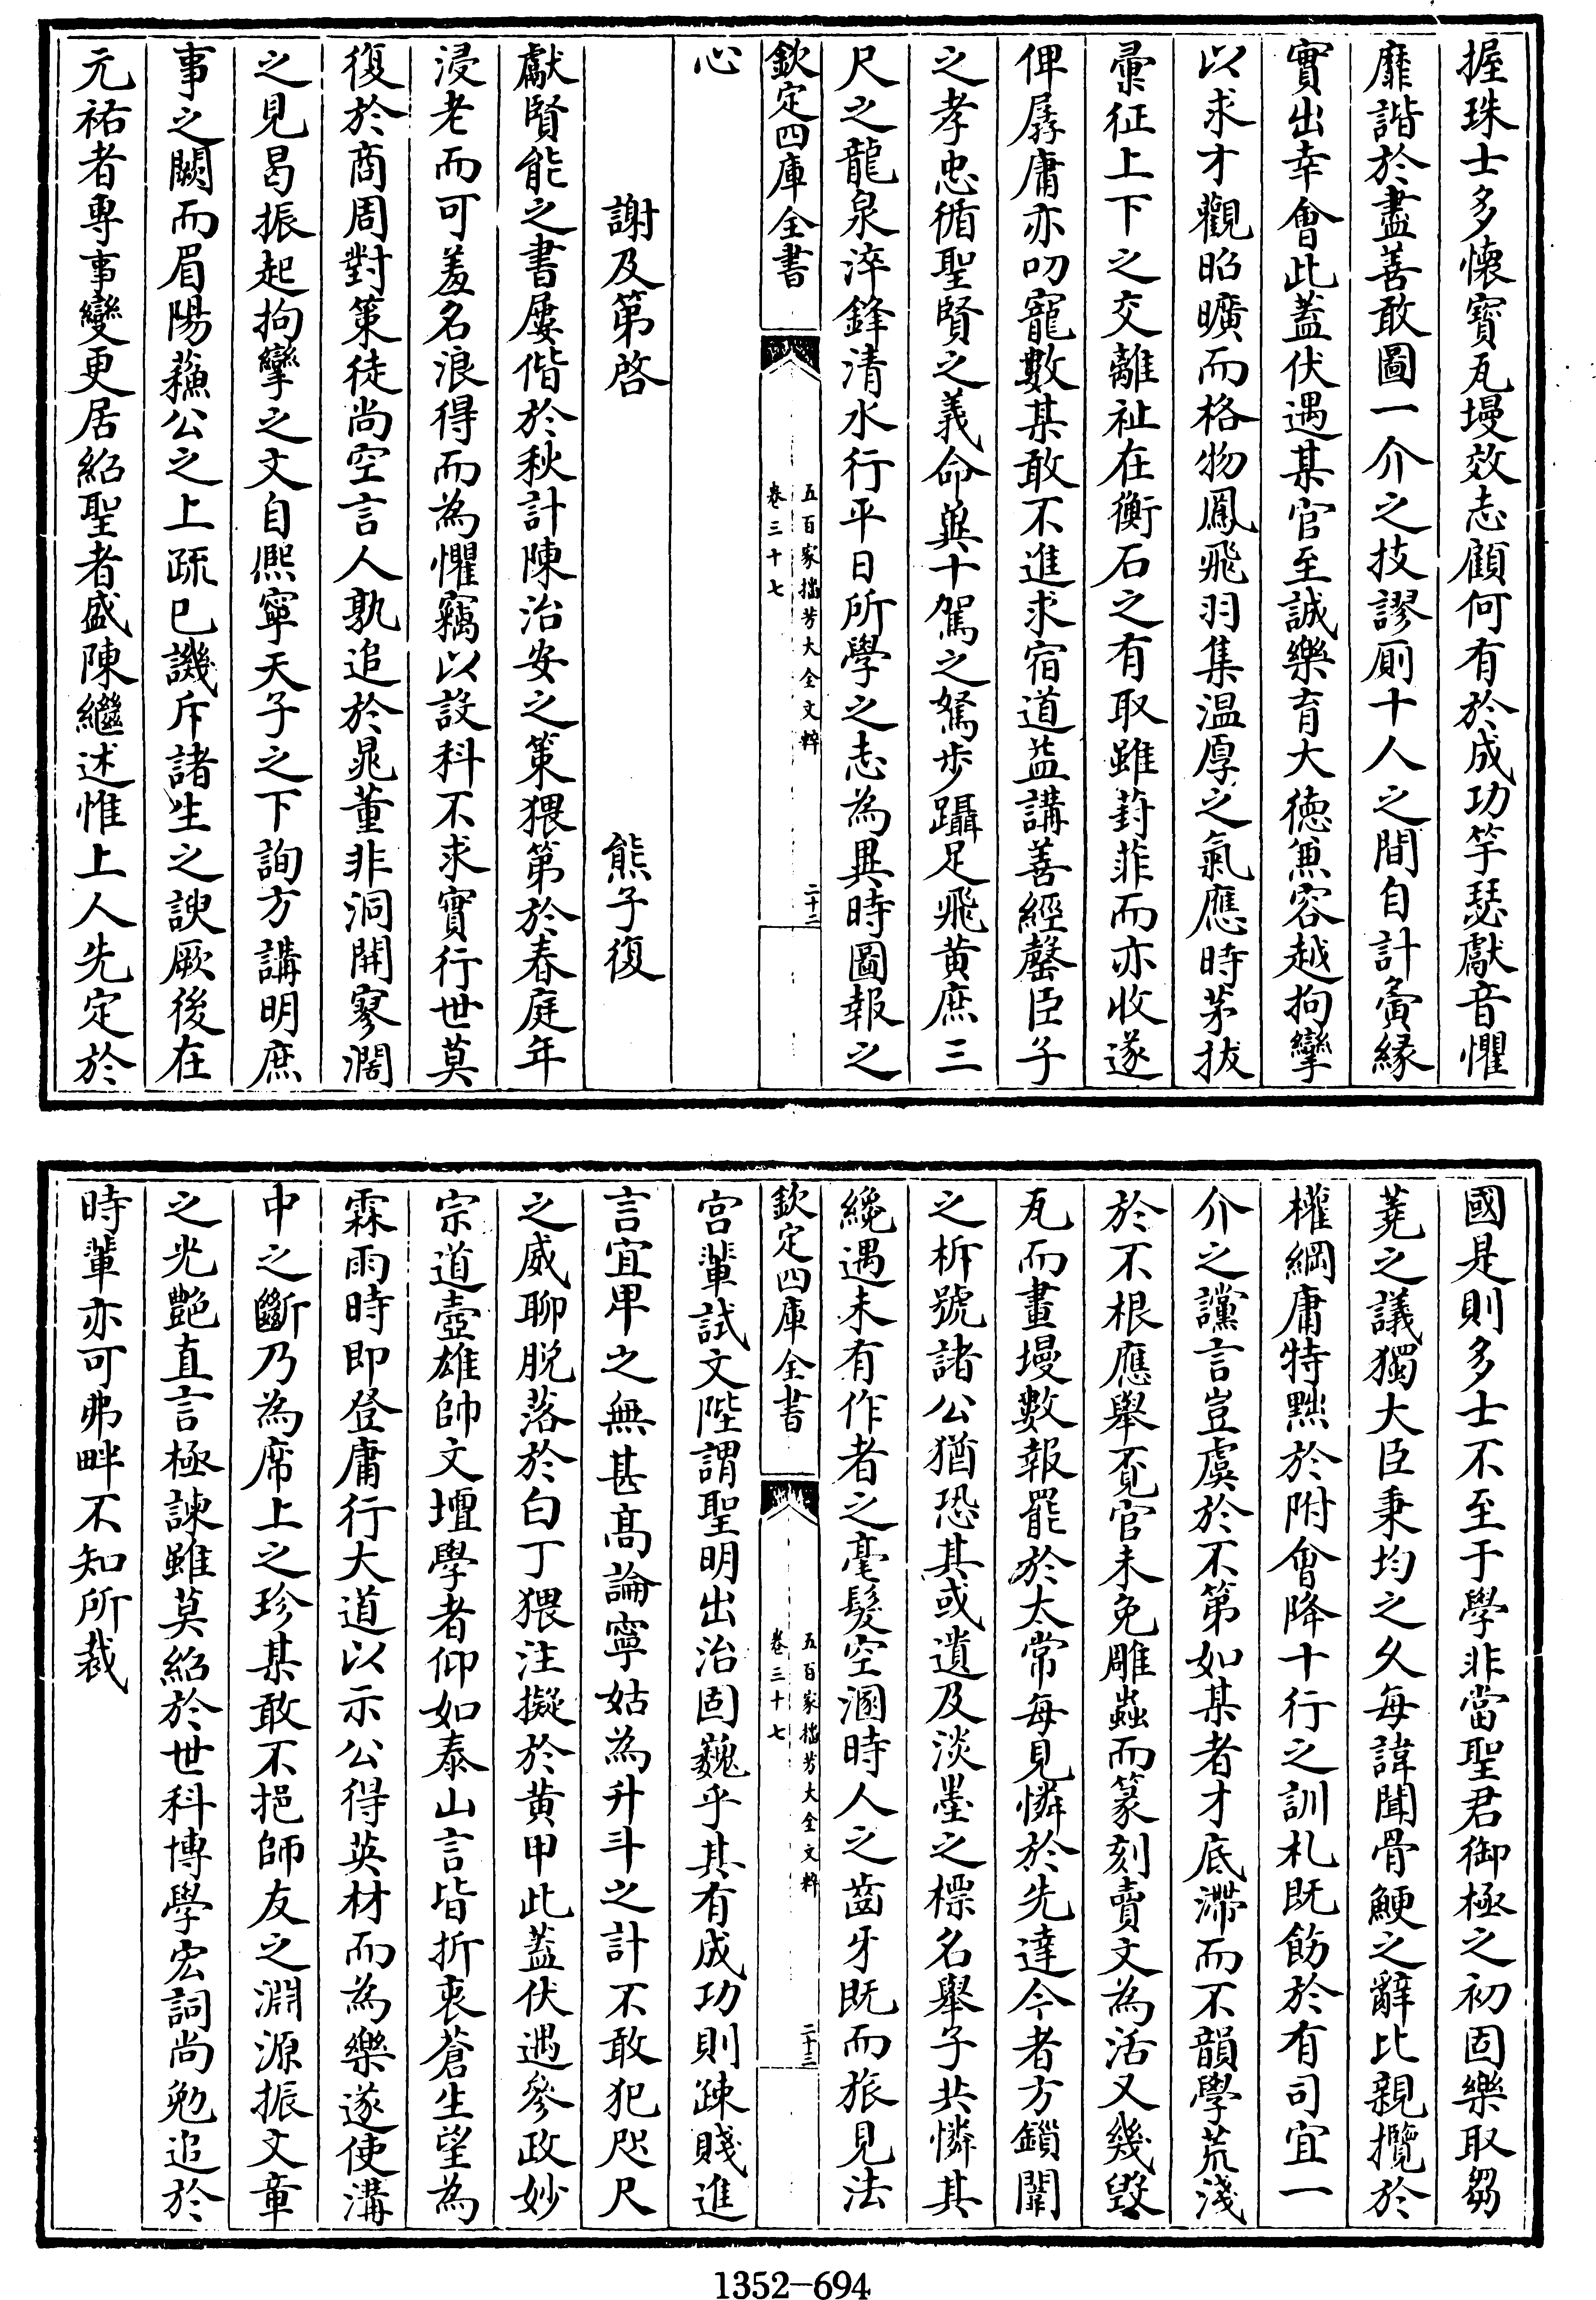 握珠士多懐寳瓦墁效志顧何有於成功竽瑟獻音懼
靡諧於盡善敢圖一介之技謬厠十人之間自計夤緣
實出幸會此蓋伏遇某官至誠樂育大徳兼容越拘攣
以求才觀昭曠而格物鳳飛羽集温厚之氣應時茅拔
彚征上下之交離祉在衡石之有取雖葑菲而亦收遂
俾孱庸亦叨寵數某敢不進求宿道益講善經罄臣子
之孝忠循聖賢之義命與十駕之駑步躡足飛黄庶三
尺之龍泉淬鋒清水行平日所學之志為異時圖報之
心
欽定四庫全書
五百家播芳大全文粹
卷三十七
二十二
謝及第啓 熊子復
獻賢能之書屢偕於秋計陳治安之策猥第於春庭年
浸老而可羞名浪得而為懼竊以設科不求實行世莫
復於商周對策徒尚空言人孰追於晁董非洞開寥濶
之見曷振起拘攣之文自熈寧天子之下詢方講明庶
事之闕而眉陽蘓公之上疏已譏斥諸生之諛厥後在
元祐者専事變更居紹聖者盛陳繼述惟上人先定於
國是則多士不至于學非當聖君御極之初固樂取芻
蕘之議獨大臣秉均之久每諱聞骨鯁之辭比親攬於
權綱庸特黜於附會降十行之訓札既飭於有司宜一
介之讜言豈虞於不第如某者才底滯而不韻學荒淺
於不根應舉覓官未免雕蟲而篆刻賣文為活又幾毁
瓦而畫墁數報罷於太常每見憐於先達今者方鎻闈
之柝號諸公猶恐其或遺及淡墨之標名舉子共憐其
纔遇未有作者之毫髮空溷時人之齒牙既而旅見法
欽定四庫全書
五百家播芳大全文粹
卷三十七
二十三
宫輩試文陛謂聖明出治固巍乎其有成功則疎賤進
言宜卑之無甚髙論寧姑為升斗之計不敢犯咫尺
之威聊脱落於白丁猥注擬於黄甲此蓋伏遇參政妙
宗道壺雄帥文壇學者仰如泰山言皆折衷蒼生望為
霖雨時即登庸行大道以示公得英材而為樂遂使溝
中之斷乃為席上之珍某敢不挹師友之淵源振文章
之光艶直言極諫雖莫紹於世科博學宏詞尚勉追於
時輩亦可弗畔不知所裁
1352-694